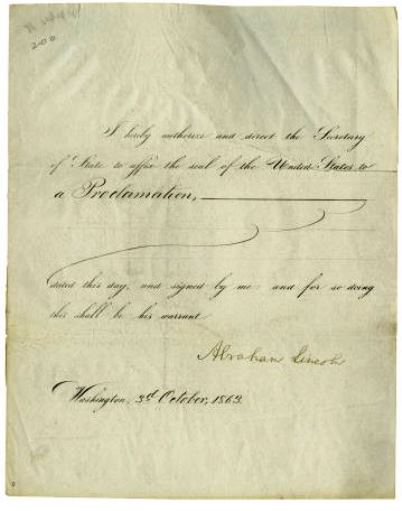 200
I hereby authorize and direct the Secretary
of State to affix the seal of the United States to
a Proclamation,
dated this day, and signed by me: and for so doing
this shall be his warrant
Abraham Lincoln
Washington, 3rd October, 1863.